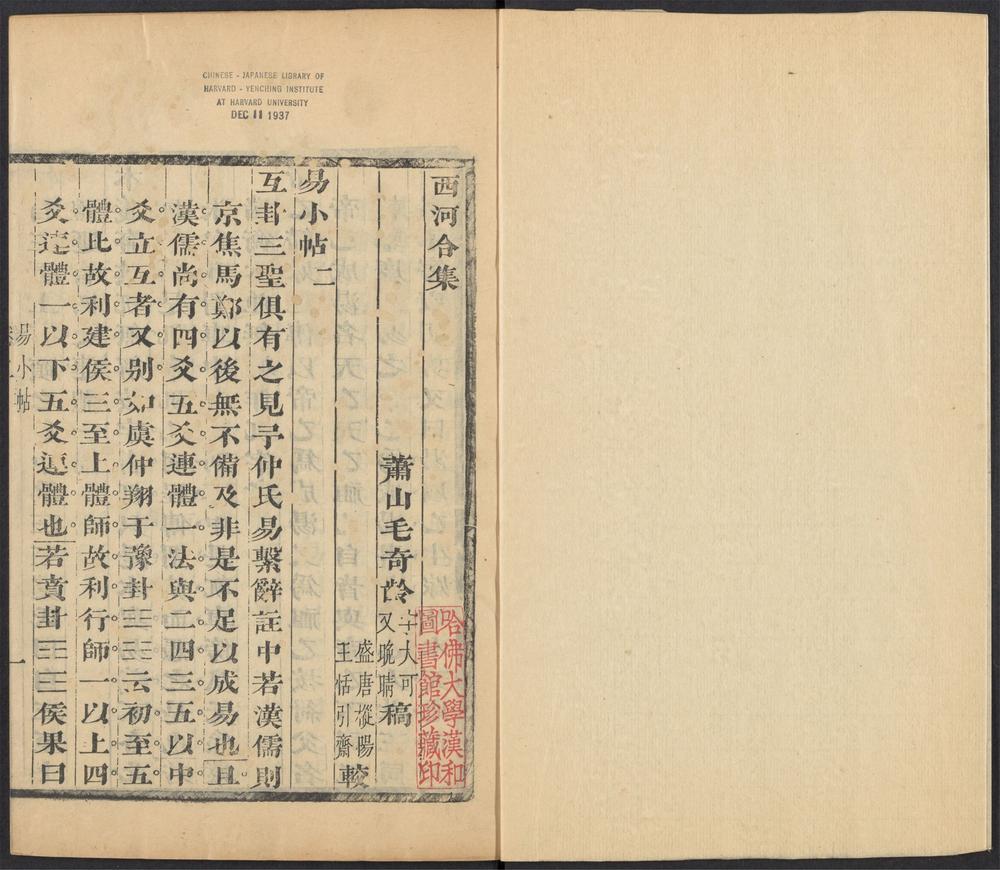 CHINESE - JAPANESE LIBRARY OF
HARVARD - YENCHING INSTITUTE
AT HARVARD UNIVERSITY
DEC 11 1937
西河合集
哈佛大學漢和
圖書館珍藏印
蕭山毛奇齡字大可又晚晴稿
盛唐樅陽王恬引齋較
易小帖二
互卦三聖俱有之見予仲氏易繫辭註中若漢儒則
京焦馬鄭以後無不備及非是不足以成易也且
漢儒尚有四爻五爻連體一法與二四三五以中
爻立互者又别如虞仲翔于豫卦䷏云初至五
體比故利建侯三至上體師故利行師一以上四
爻連體一以下五爻連體也若賁卦䷕侯果曰
易小帖
一